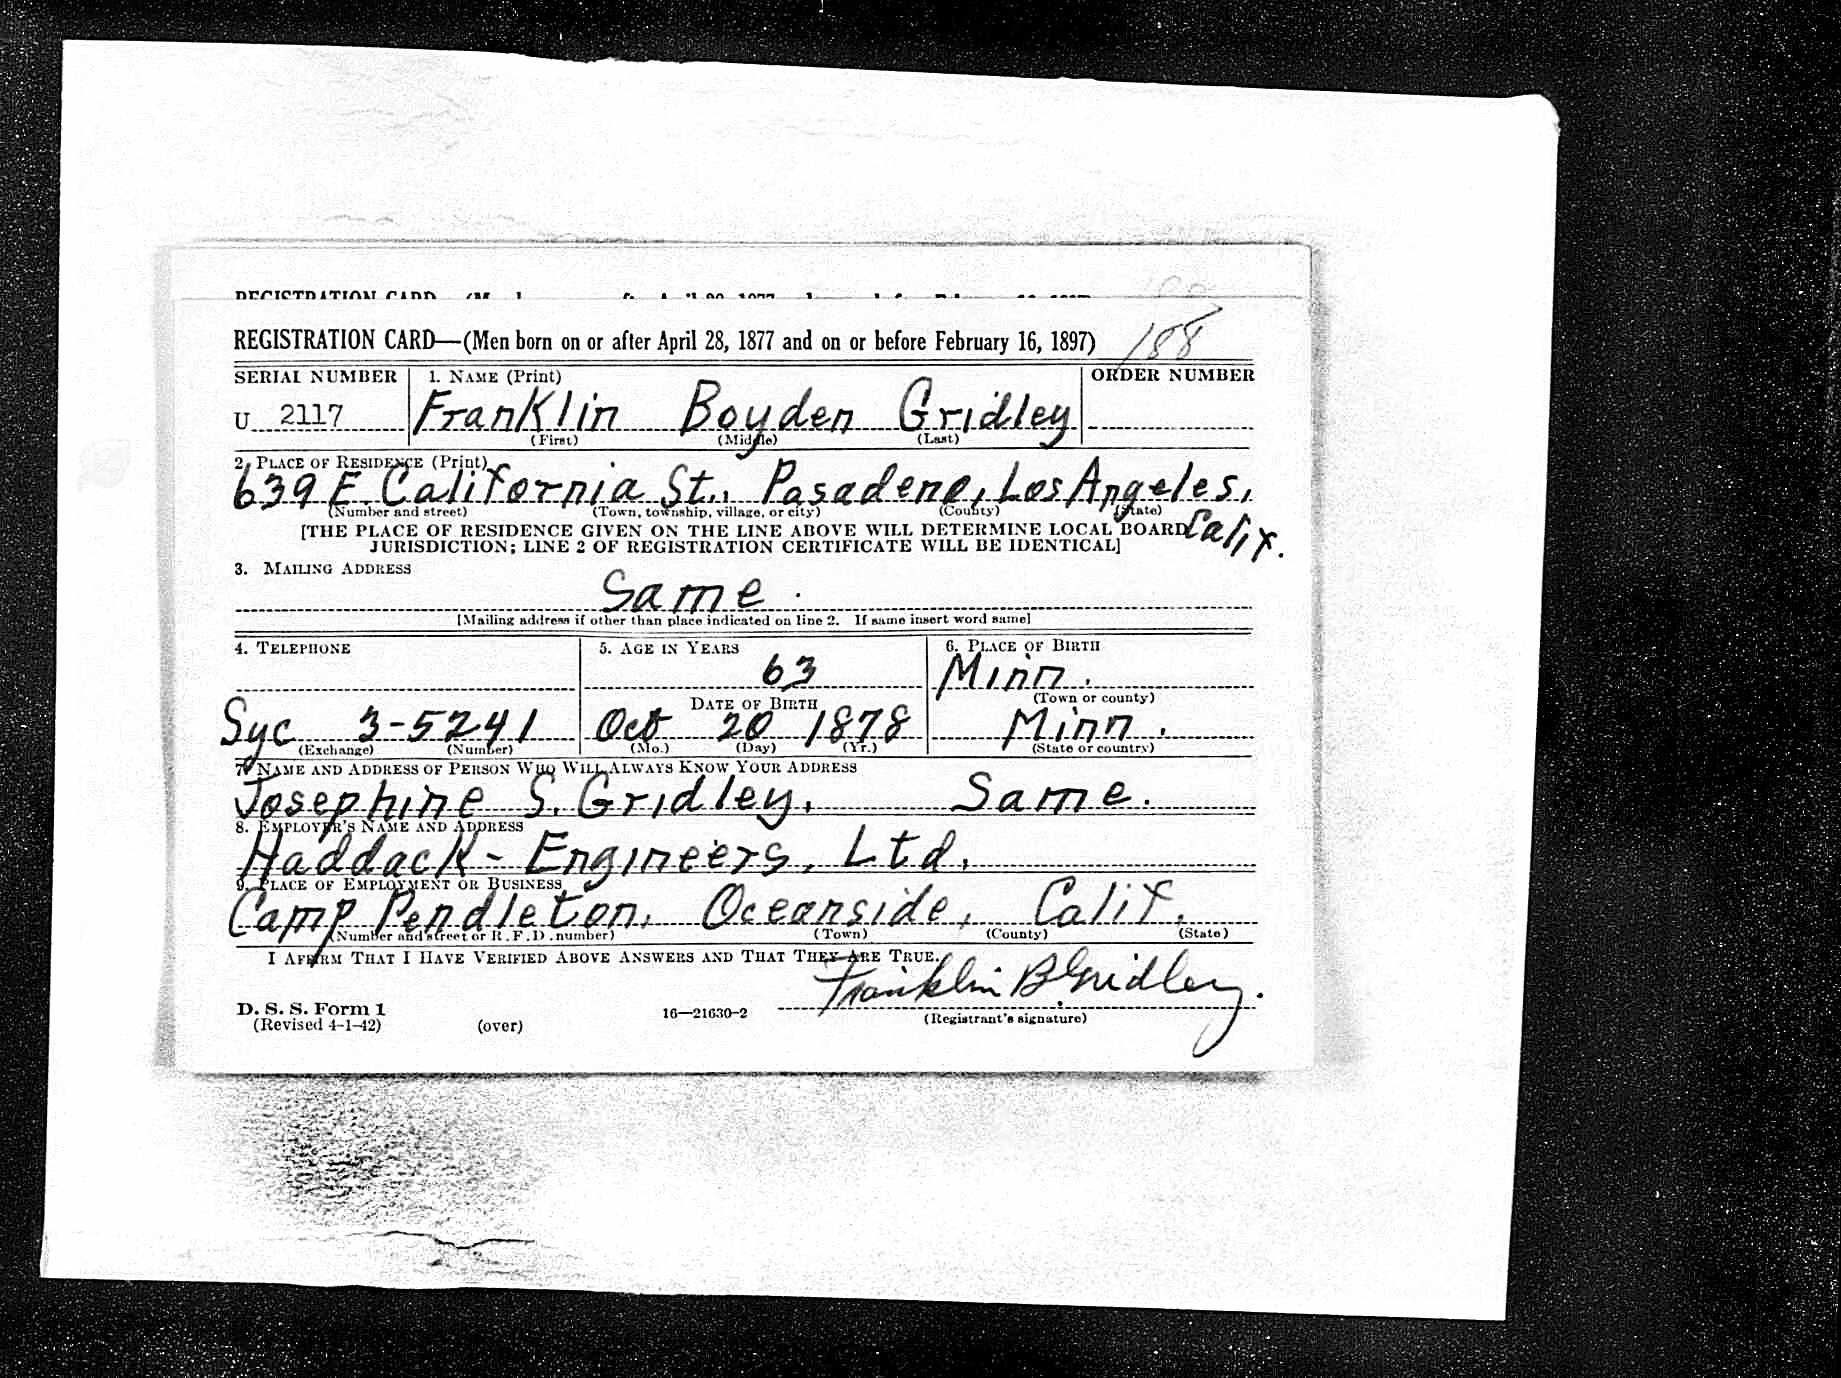 REGISTRATION CARD—(Men born on or after April 28, 1877 and on or before February 16, 1897)
188
SERIAL NUMBER
1. NAME (Print)
ORDER NUMBER
U 2117
Franklin Boyden Gridley
(First) (Middle) (Last)
2. PLACE OF RESIDENCE (Print)
639 E. California St., Pasadena, Los Angeles,
(Number and street) (Town, township, village, or city) (County) (State)
Calif.
[THE PLACE OF RESIDENCE GIVEN ON THE LINE ABOVE WILL DETERMINE LOCAL BOARD
JURISDICTION; LINE 2 OF REGISTRATION CERTIFICATE WILL BE IDENTICAL]
3. MAILING ADDRESS
Same.
[Mailing address if other than place indicated on line 2. If same insert word same]
4. TELEPHONE
5. AGE IN YEARS
6. PLACE OF BIRTH
63
Minn.
DATE OF BIRTH
(Town or county)
Syc 3-5241
Oct 20 1878
Minn.
(Exchange) (Number)
(Mo.) (Day) (Yr.)
(State or country)
7. NAME AND ADDRESS OF PERSON WHO WILL ALWAYS KNOW YOUR ADDRESS
Josephine S. Gridley. Same.
8. EMPLOYER'S NAME AND ADDRESS
Haddack-Engineers, Ltd.
9. PLACE OF EMPLOYMENT OR BUSINESS
Camp Pendleton, Oceanside, Calif.
(Number and street or R. F. D. number) (Town) (County) (State)
I AFFIRM THAT I HAVE VERIFIED ABOVE ANSWERS AND THAT THEY ARE TRUE.
Franklin B Gridley.
D. S. S. Form 1
(Revised 4-1-42) (over) 16—21630-2 (Registrant's signature)